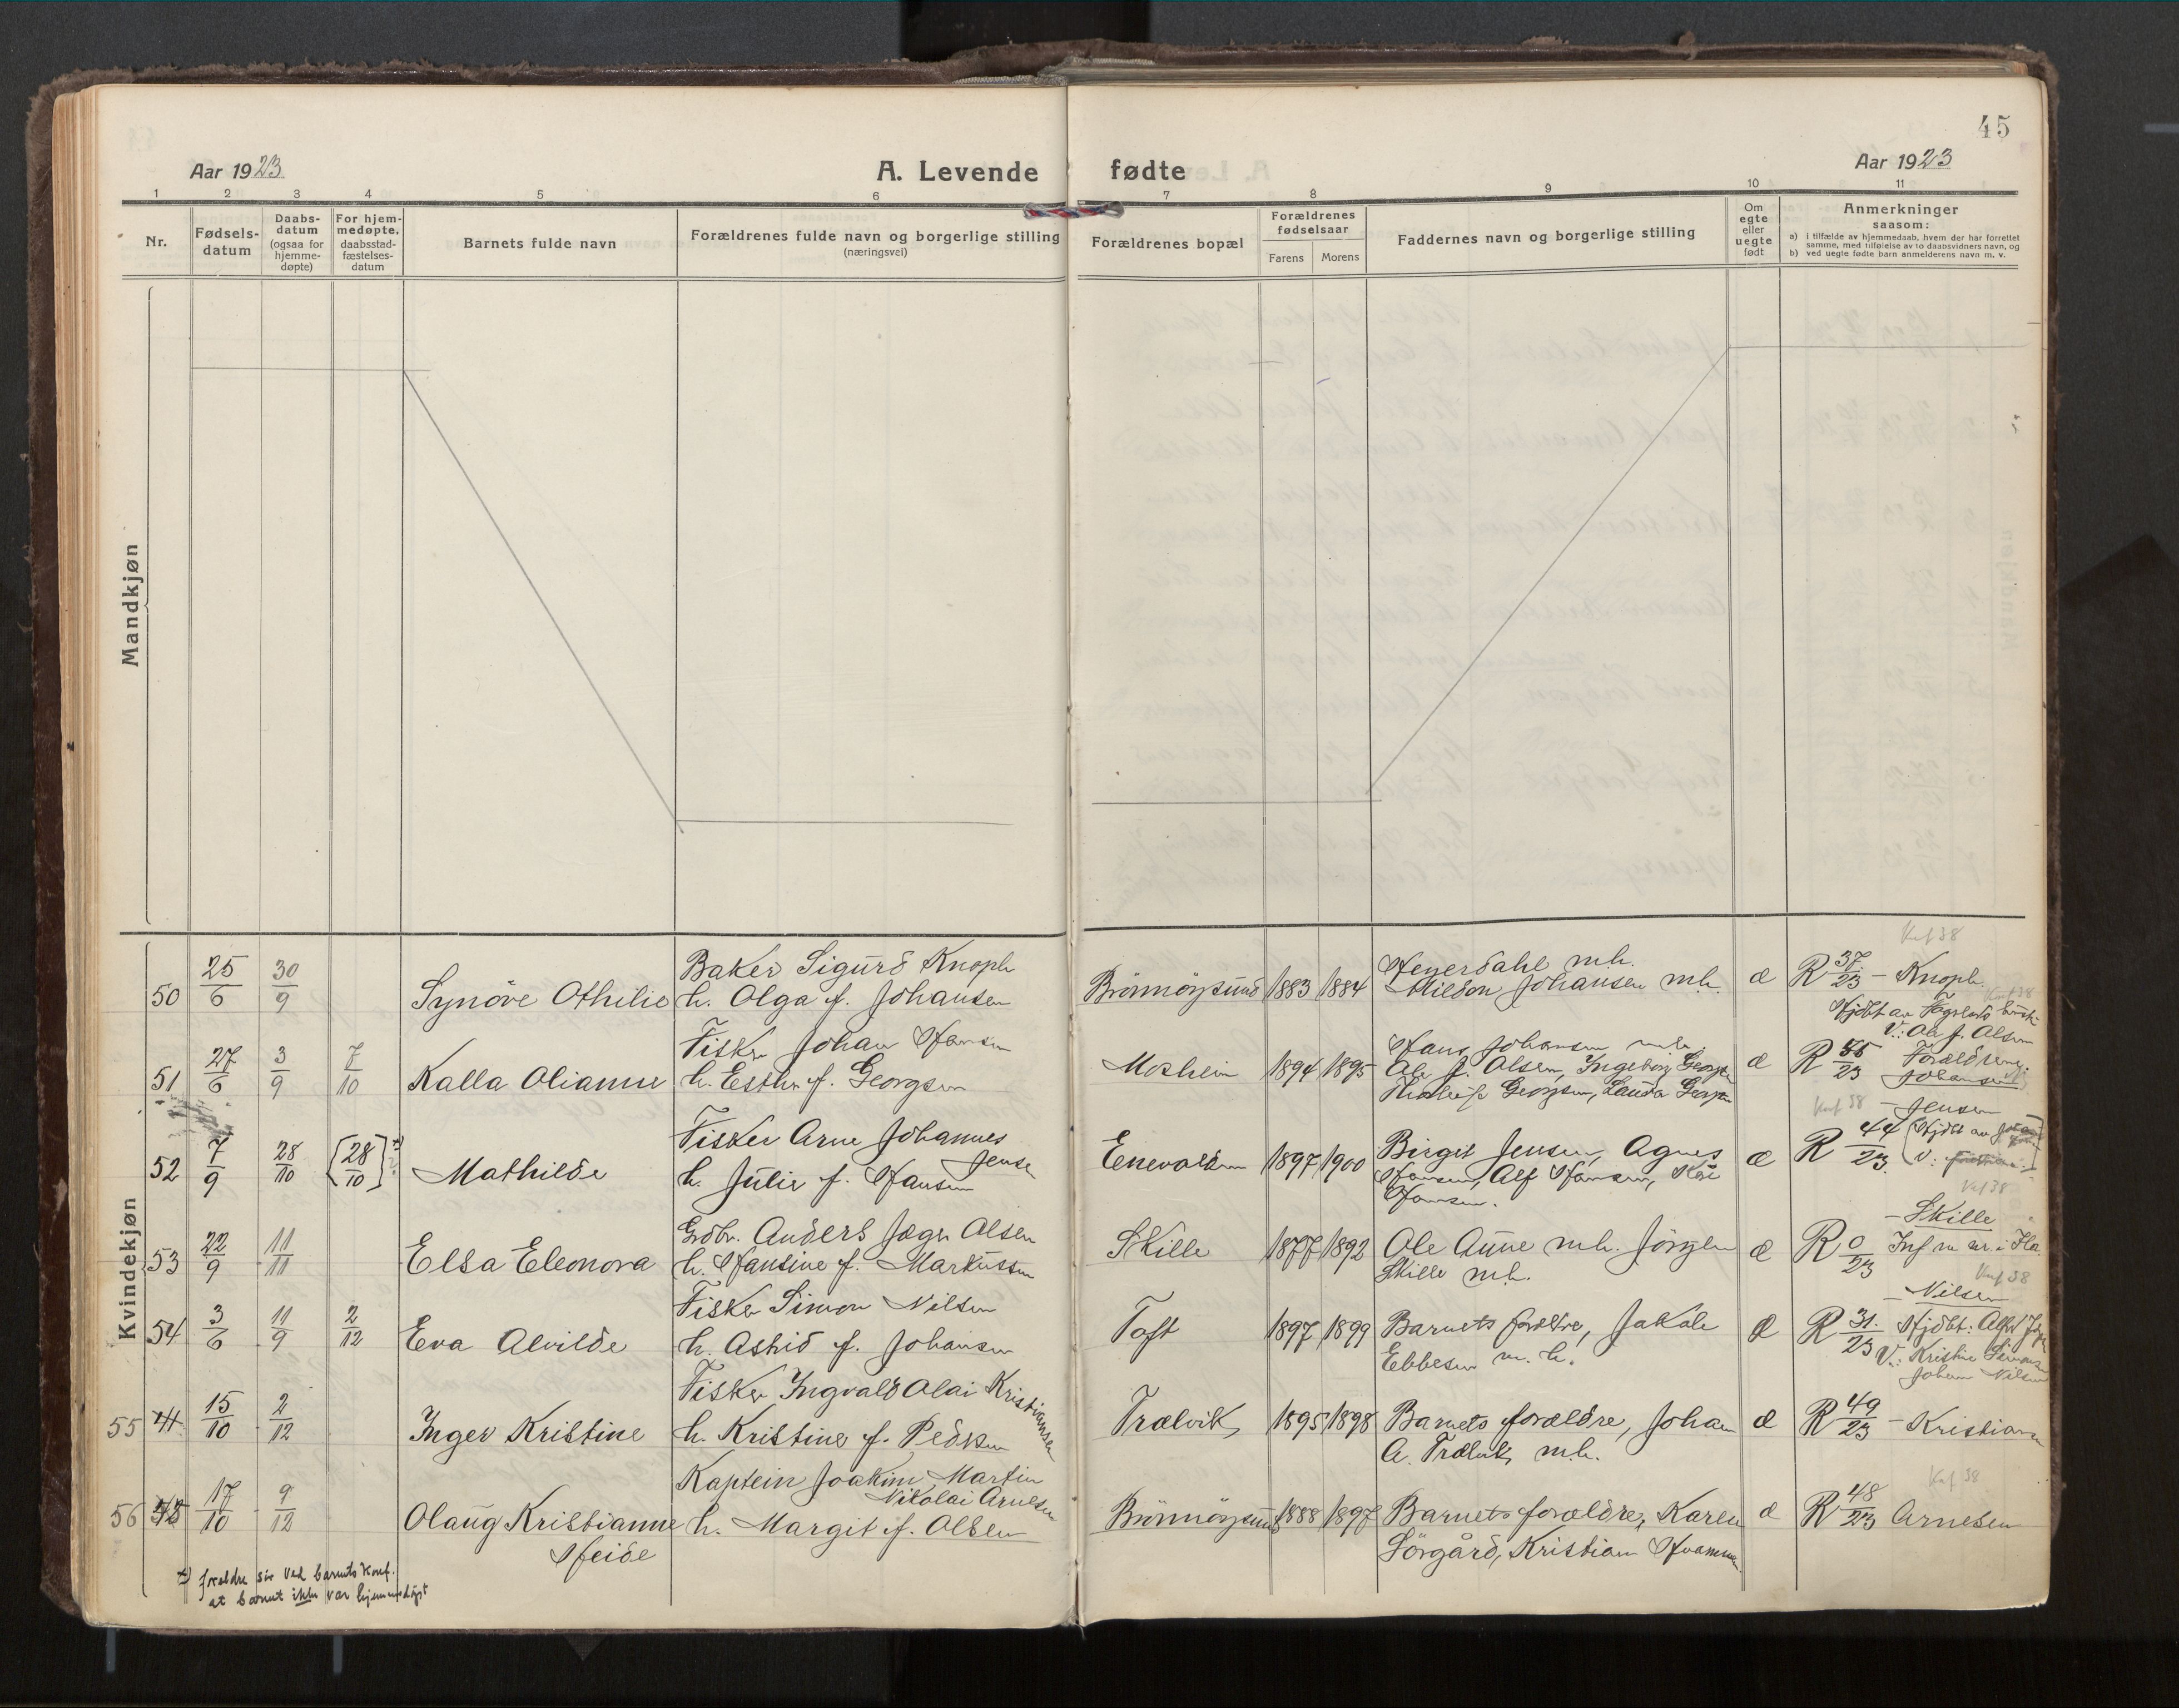 45
Aar 1923
A. Levende fødte
Aar 1923
1 2 3 4 5 6 7 8 9 10 11
Nr.
Fødsels-
datum
Daabs-
datum
(ogsaa for
hjemme-
døpte)
For hjem-
medøpte,
daabsstad-
fæstelses-
datum
Barnets fulde navn
Forældrenes fulde navn og borgerlige stilling
(næringsvei)
Forældrenes bopæl
Forældrenes
fødselsaar
Farens Morens
Faddernes navn og borgerlige stilling
Om
egte
eller
uegte
født
Anmerkninger
saasom:
a) i tilfælde av hjemmedaab, hvem der har forrettet
samme, med tilføielse av to daabsvidners navn, og
b) ved uegte fødte barn anmelderens navn m. v.
Mandkjøn
Kvindekjøn
50 25/6 30/9 Synöve Othilie
Baker Sigurd Knoph
h. Olga f. Johansen
Brönnöysund 1883 1884
Heuerdahl m.h.
Johansen m.h.
æ R 37/23 - Knoph
Konf 38
51 27/6 3/9 7/10 Kalla Olianne
Fisker Johan Hansen
h. Esther f. Georgsen
Moshein 1894 1895
Hans Johansen m.h.
Ole J. Olsen, Ingeborg Georgsen
Georgsen, Lauda Georgsen
æ
V: Ole J. Olsen
R 35/23 Forældrene:
Johansen
52 7/9 28/10 [28/10] x) Mathilde
Fisker Arne Johannes
Jensen
h. Julie f. Hansen
1897 1900
Birgit Jensen, Agnes
Hansen, Alf Hansen, Kåre
Hansen.
æ Konf 38 - Jensen
R 44/23 (Hjdbt av
53 22/9 11/11 Elsa Eleonora
Grdbr. Anders Jæger Olsen
h. Hansine f. Markussen
Skille 1877 1892
Ole Aune m.h. Jörgen
Skille m.h.
æ Konf 38
- Skille
R 0/23
54 3/6 11/9 2/12 Eva Alvilde
Fisker Simon Nilsen
h. Astrid f. Johansen
Toft 1897 1899
Barnets forældre, Jakob
Ebbesen m.h.
æ Konf 38
- Nilsen
R 31/23 Hjdbt: Alfred
V.: Kristine Simonsen
Johan Nilsen
55 41 15/10 2/12 Inger Kristine
Fisker Ingvald Olai Kristiansen
h. Kristine f. Pedersen
Trælvik 1895 1898
Barnets forældre, Johan
A. Trælvik m.h.
æ R 49/23 - Kristiansen
56 17/10 9/12 Olaug Kristianne
Heide
Kaptein Joakim Martin
Nikolai Arnesen
h. Margit f. Olsen
Brönnöysund 1888 1897
Barnets forældre, Karen
Sörgård, Kristian
æ Konf 38
R 48/23 Arnesen
x) forældre sir ved barnets konf.
at barnet ikke var hjemmedöpt